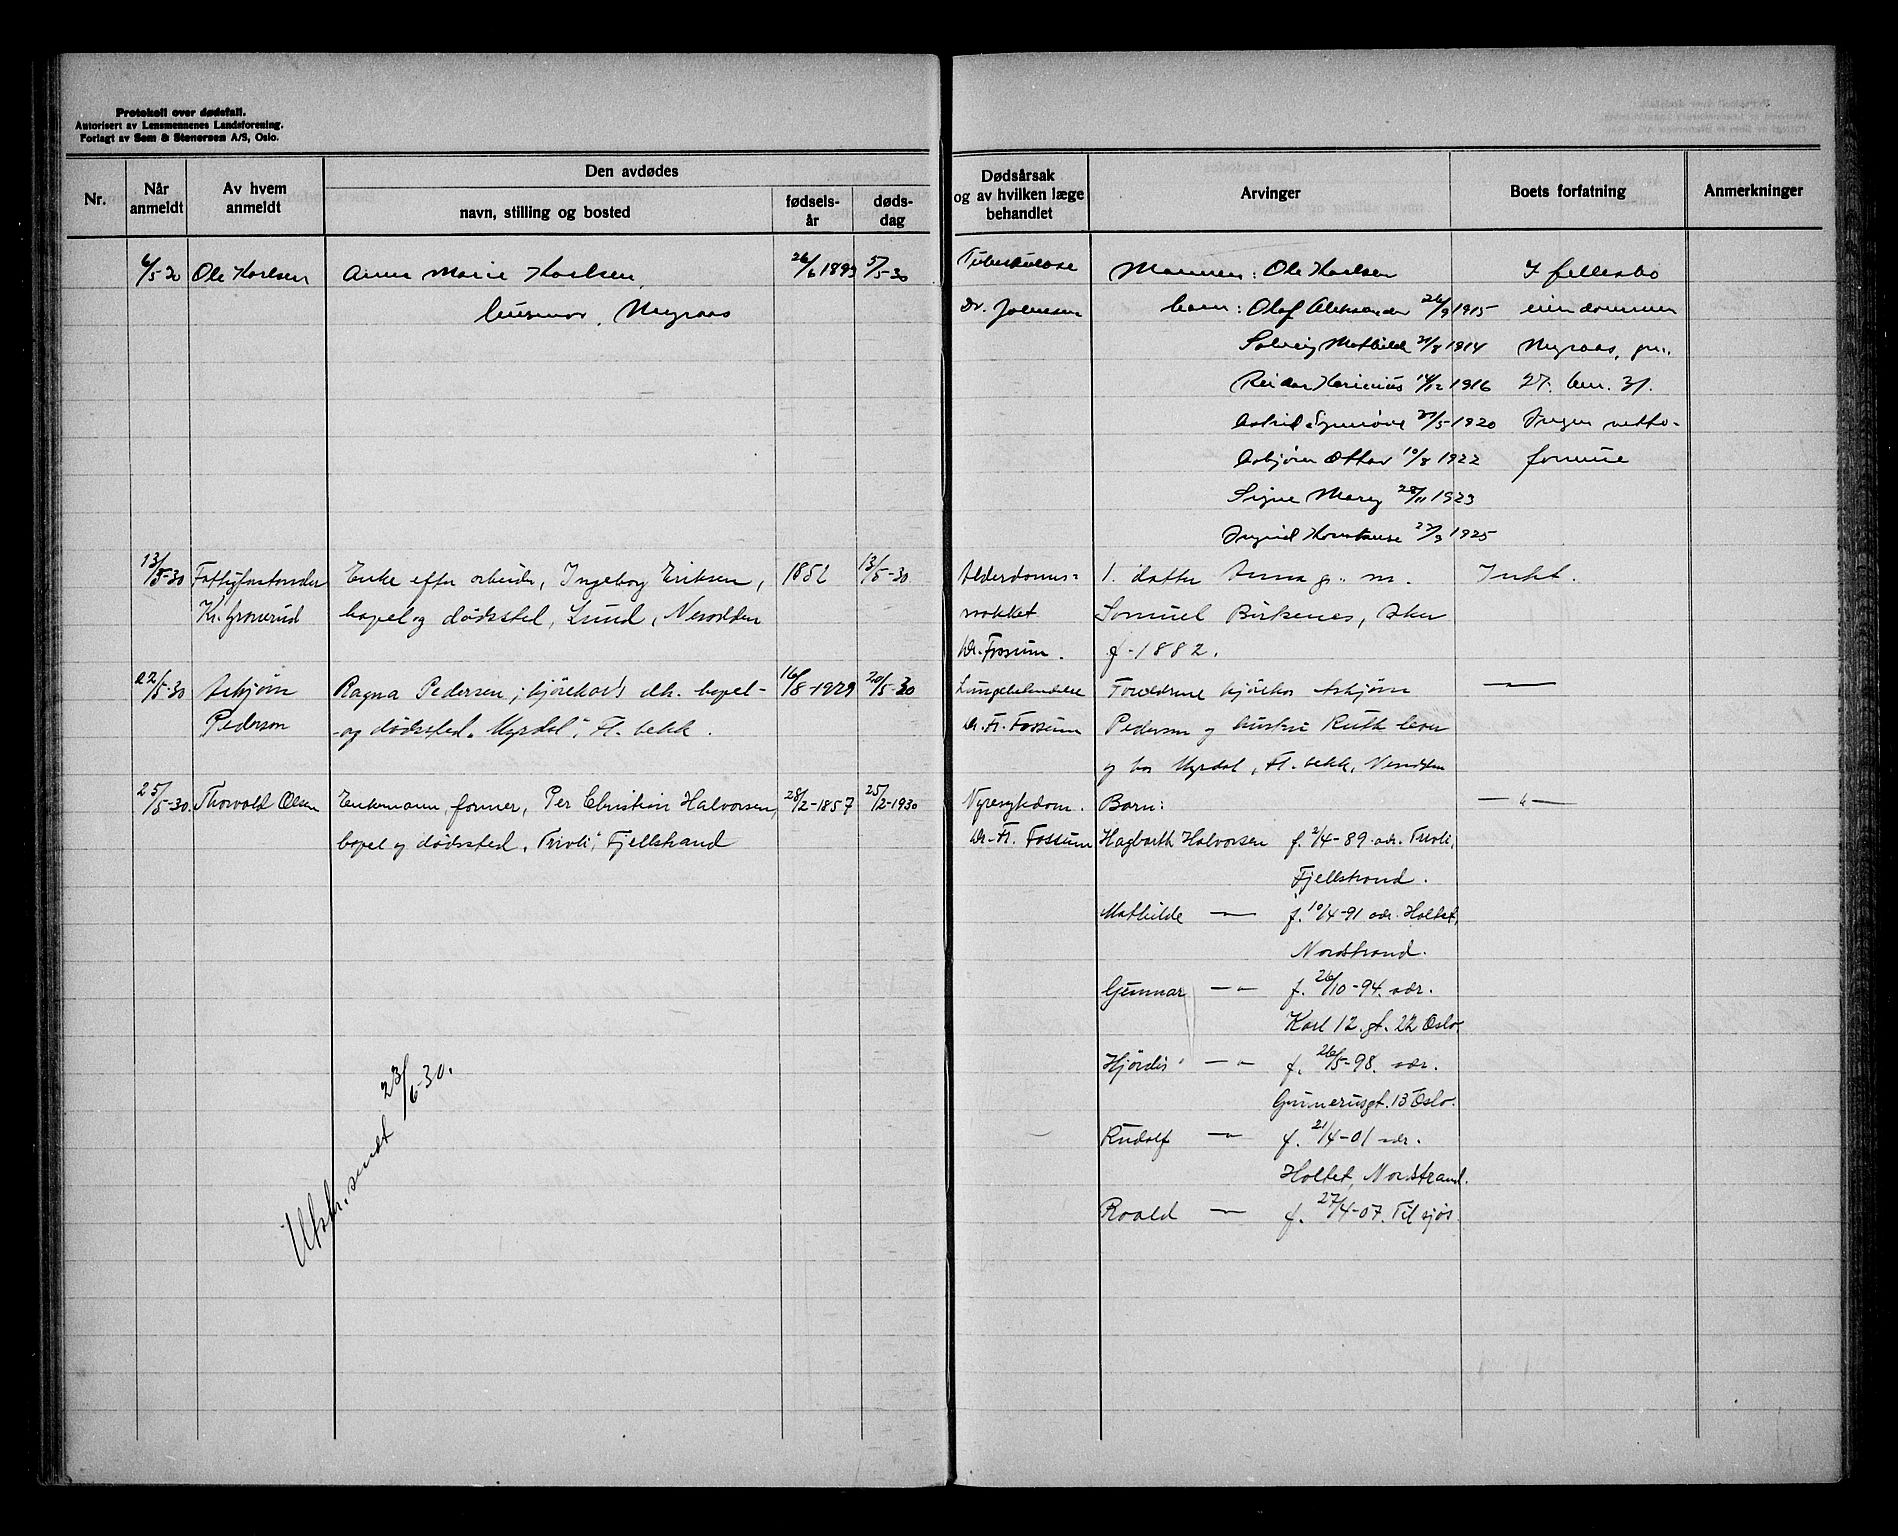 Protokoll over dødsfall.
Autorisert av Lensmennenes Landsforening.
Forlagt av Sem & Stenersen A/S, Oslo.
Nr.
Når anmeldt
Av hvem anmeldt
Den avdødes
navn, stilling og bosted
fødsels-år
døds-dag
Dødsårsak og av hvilken læge behandlet
Arvinger
Boets forfatning
Anmerkninger
6/5-30 Ole Karlsen Anna Marie Karlsen, 26/6 1893 5/5-30 Tuberkulose Mannen: Ole Karlsen I fellesbo
husmor, Myraas Dr. Johnsen barn: Olaf Aleksander 26/9 1915 eiendommen
Solveig Mathilde 21/8 1914 Myraas, gn.
Reidar 14/12 1916 27. bnr. 31.
Astrid Synnøve 21/5-1920 Ingen netto-
Asbjørn Ottar 10/8 1922 formue
Signe Mary 28/11 1923
Ingrid 22/3 1925
13/5-30 Fattigforstander Enke efter arbeider, Ingeborg Eriksen, 185 13/5-30 Alderdoms- 1. datter Anna g. m. Intet.
Kr. Granerud bopel og dødssted, Lund, Nesodden svakhet Samuel Birkenes, Aker
Dr. Fossum. f. 1882.
22/5-30 Asbjørn Ragna Pedersen, kjørekar's dtr. bopel- 16/8-1929 20/5-30 Lungebetendelse Foreldrene kjørekar Asbjørn —
Pedersen og dødssted. Myrdal, Fl. bekk. Dr. Fr. Fossum Pedersen og hustru Ruth lever
og bor Myrdal, Fl. bekk, Nesodden
25/5-30. Thorvald Olsen Enkemann, former, Per Christian Halvorsen, 28/2-1857 25/2-1930 Nyresykdom. Barn: — " —
bopel og dødssted. "Tivoli", Fjellstrand Dr. Fr. Fossum Hagbarth Halvorsen f. 2/4-89 adr. Tivoli,
Fjellstrand.
Mathilde — " — f. 10/4-91 adr. Holtet,
Nordstrand.
Gunnar — " — f. 26/10-94. adr.
Karl 12. gt. 22 Oslo.
Hjørdis — " — f. 26/5-98. adr.
Gunnerusgt. 13 Oslo.
Rudolf — " — f. 21/4-01 adr.
Holtet, Nordstrand.
Roald — " — f. 27/4-07. Til sjøs.
Utskr. sendt 23/6-30.